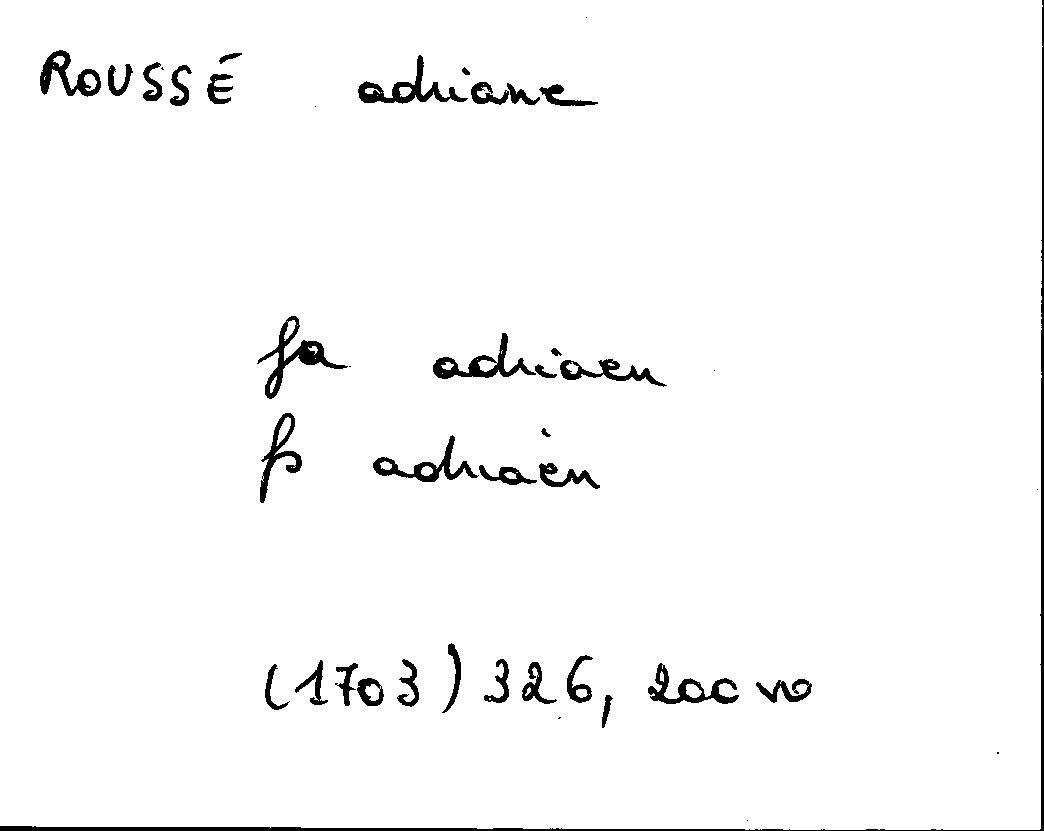 ROUSSÉ adriane
fa adriaen
fs adriaen
(1703) 326, 200 vo